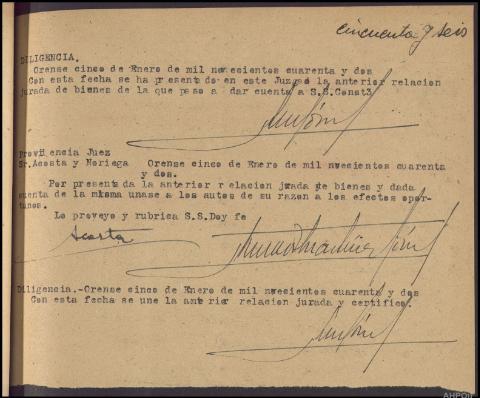 cincuenta y seis
DILIGENCIA.
Orense cinco de Enero de mil novecientos cuarenta y dos
Con esta fecha se ha presentado en este Juzgado la anterior relacion
jurada de bienes de la que paso a dar cuenta a S.S.Const3
Providencia Juez
Sr.Acosta y Noriega Orense cinco de Enero de mil novecientos cuarenta
y dos.
Por presentada la anterior relacion jurada de bienes y dada
cuenta de la misma unase a los autos de su razon a los efectos opor-
tunos.
Lo proveyo y rubrica S.S.Doy fe
Acosta
Diligencia.-Orense cinco de Enero de mil novecientos cuarenta y dos
Con esta fecha se une la anterior relacion jurada y certifico.
AHPOu